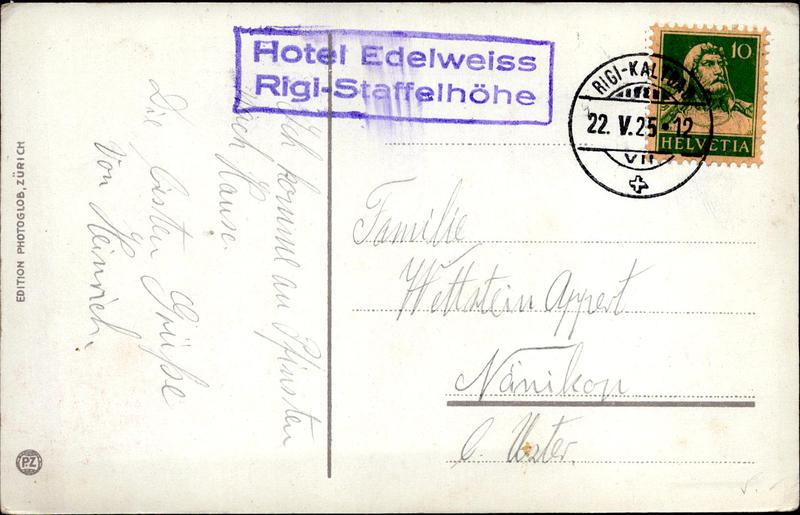 Hotel Edelweiss
Rigi-Staffelhöhe
10
HELVETIA
RIGI-KALTBAD
22. V. 25 · 12
VII
Ich komme an Pfinsten
nach Hause.
Die besten Grüße
Von Heinrich.
Familie
Wettstein Appert
Nänikon
b. Uster.
EDITION PHOTOGLOB, ZÜRICH
PZ